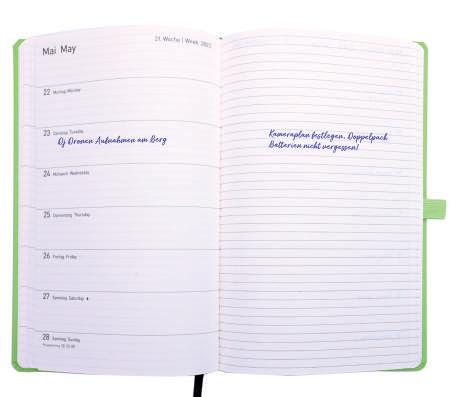 Mai May
21. Woche | Week, 2023
22 Montag Monday
23 Dienstag Tuesday
Dj Dronen Aufnahmen am Berg
24 Mittwoch Wednesday
25 Donnerstag Thursday
26 Freitag Friday
27 Samstag Saturday
28 Sonntag Sunday
Kameraplan festlegen, Doppelpack
Batterien nicht vergessen!